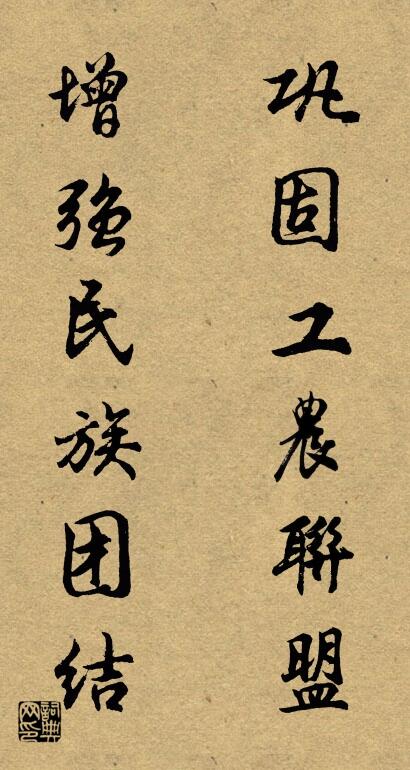 巩固工農聯盟
增强民族团结
詞典网印